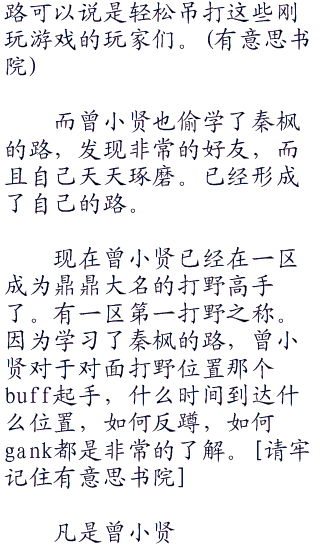 路可以说是轻松吊打这些刚
玩游戏的玩家们。(有意思书
院)
而曾小贤也偷学了秦枫
的路，发现非常的好友，而
且自己天天琢磨。已经形成
了自己的路。
现在曾小贤已经在一区
成为鼎鼎大名的打野高手
了。有一区第一打野之称。
因为学习了秦枫的路，曾小
贤对于对面打野位置那个
buff起手，什么时间到达什
么位置，如何反蹲，如何
gank都是非常的了解。[请牢
记住有意思书院]
凡是曾小贤